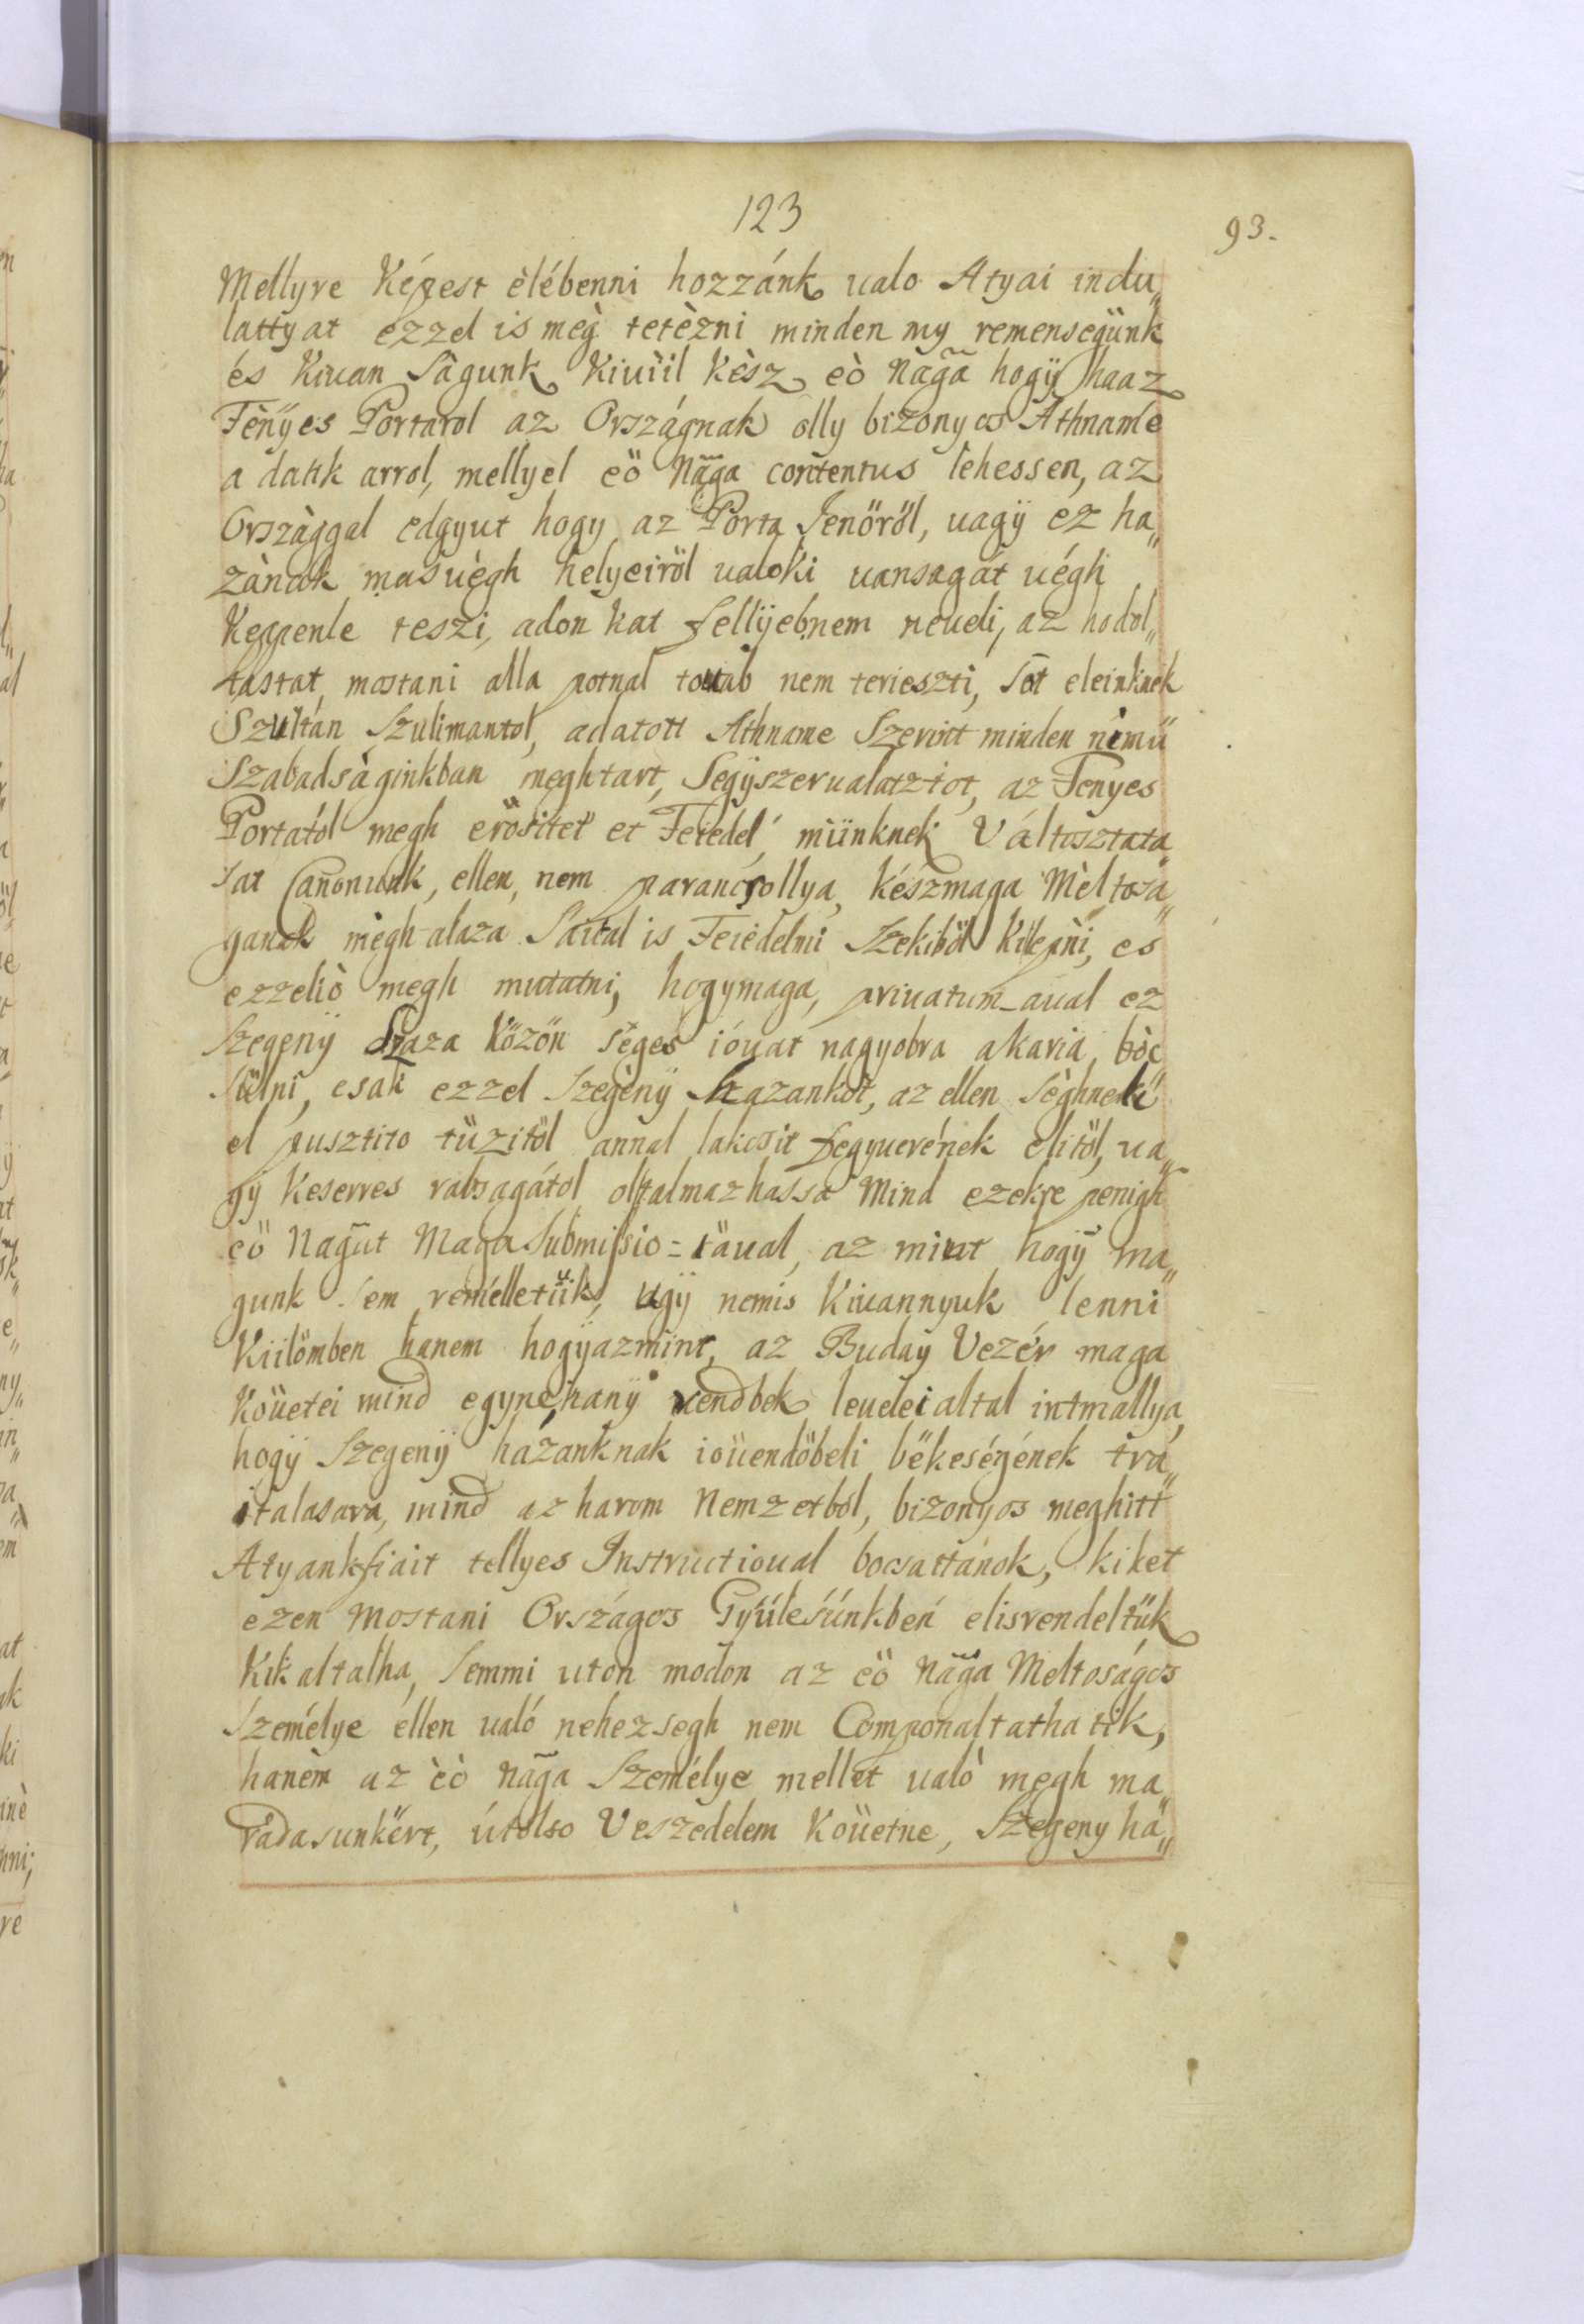 123
93.
Mellyre Képest èlébenni hozzánk ualo Atyai indu„
lattyat ezzel is mèg tetèzni minden my remensegünk
és Kiuan Sàgunk Kiuüil Kèsz eò Nãgã hogÿ haaz
Fènÿes Portarol az Országnak olly bizonyos Athname
a datik arrol, mellyel eö Nãga contentus lehessen, az
Orszàggal edgyut hogy az Porta Jenöröl, uagÿ ez ha„
zànak mas uègh helyeiröl ualoki uansagát uégh
Keppenle teszi, adon kat fellÿebnem neueli, az hodol„
tastat, mostani alla potnal touab nem terieszti, Sőt eleinknek
Szultán Szulimantol, adatott Athname Szerint minden nèmü
Szabadsàginkban meghtart, Segÿszerualatztot, az Fenyes
Portatól megh erösitet et Feiedel, münknek Változtata„
tat Cañonunk, ellen, nem parancsollya, készmaga Mèltosa„
ganak mègh alaza Sáical is Feiedelmi Szekiböl Kilepni, es
ezzeliò megh mutatni, hogymaga, priuatum-aual ez
Szegenÿ Haza közön séges ióuat nagyobra akaria bòc
sülni, csak ezzel Szegènÿ Hazankot, az ellen Sèghnek
el pusztito tüzitöl annal lakosit fegyuerének elitöl, ua„
gy Keserres rabsagátol oltalmazhassa Mind ezekre penigh
eö Nagũt Maga Submissio=iäual, az mint hogÿ ma„
gunk Sem remélletük, ugÿ nemis Kiuannyuk lenni
Küilömben hanem hogÿazmint, az Buday Vezér maga
Köuetei mind egynehanÿ rendbek leuelei altal intmallya,
hogÿ Szegenÿ házanknak ioüendöbeli békeségének tra„
italasara, mind az harom Nemzetból, bizonyos meghitt
Atyankfiait tellyes Instructioual bocsattánok, kiket
ezen mostani Országos Gyüleśúnkben elisrendeltük
Kik altalha, Semmi uton modon az eö Nãga Meltoságos
Személye ellen ualó nehezsegh nem Componaltathatik,
hanèm az èò Nãga Személye mellet ualò megh ma„
radasunkért, útolso Veszedelem Köüetne, Szegeny ha„